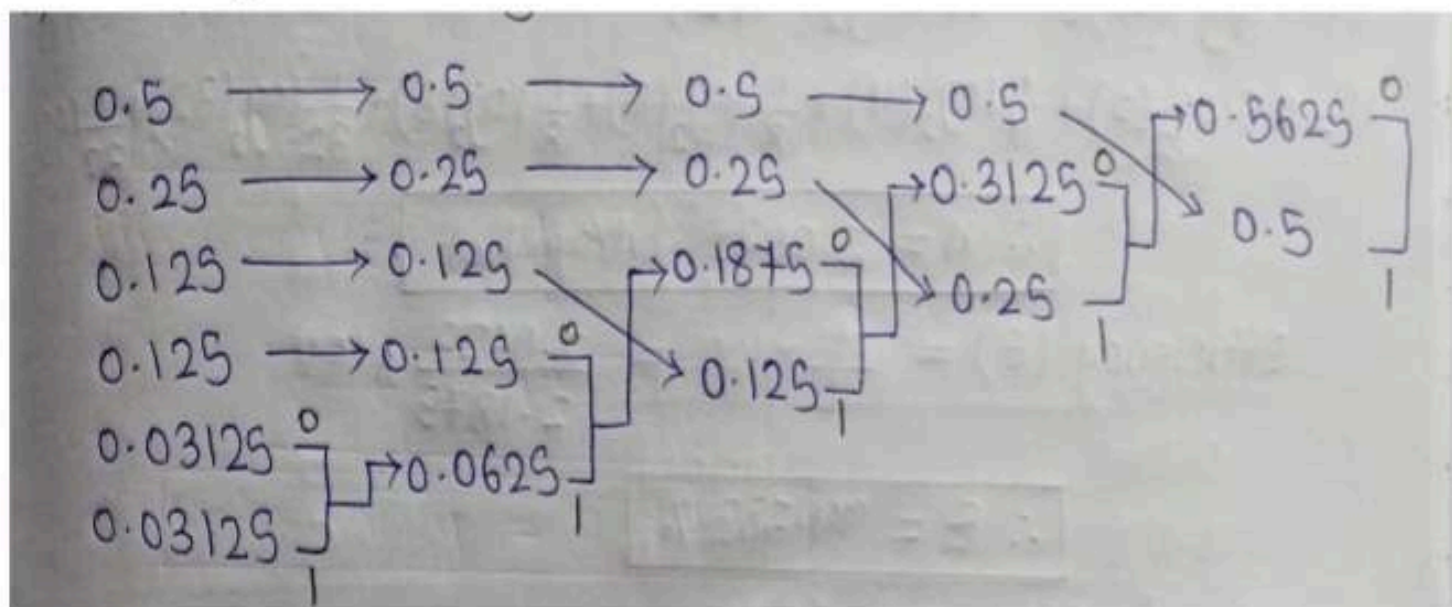 0.5 → 0.5 → 0.5 → 0.5 0.5625 0
0.25 → 0.25 → 0.25 → 0.3125 0 0.5
0.125 → 0.125 → 0.1875 0 0.25 1 1
0.125 → 0.125 0 0.125 1
0.03125 0 → 0.0625 1
0.03125 1